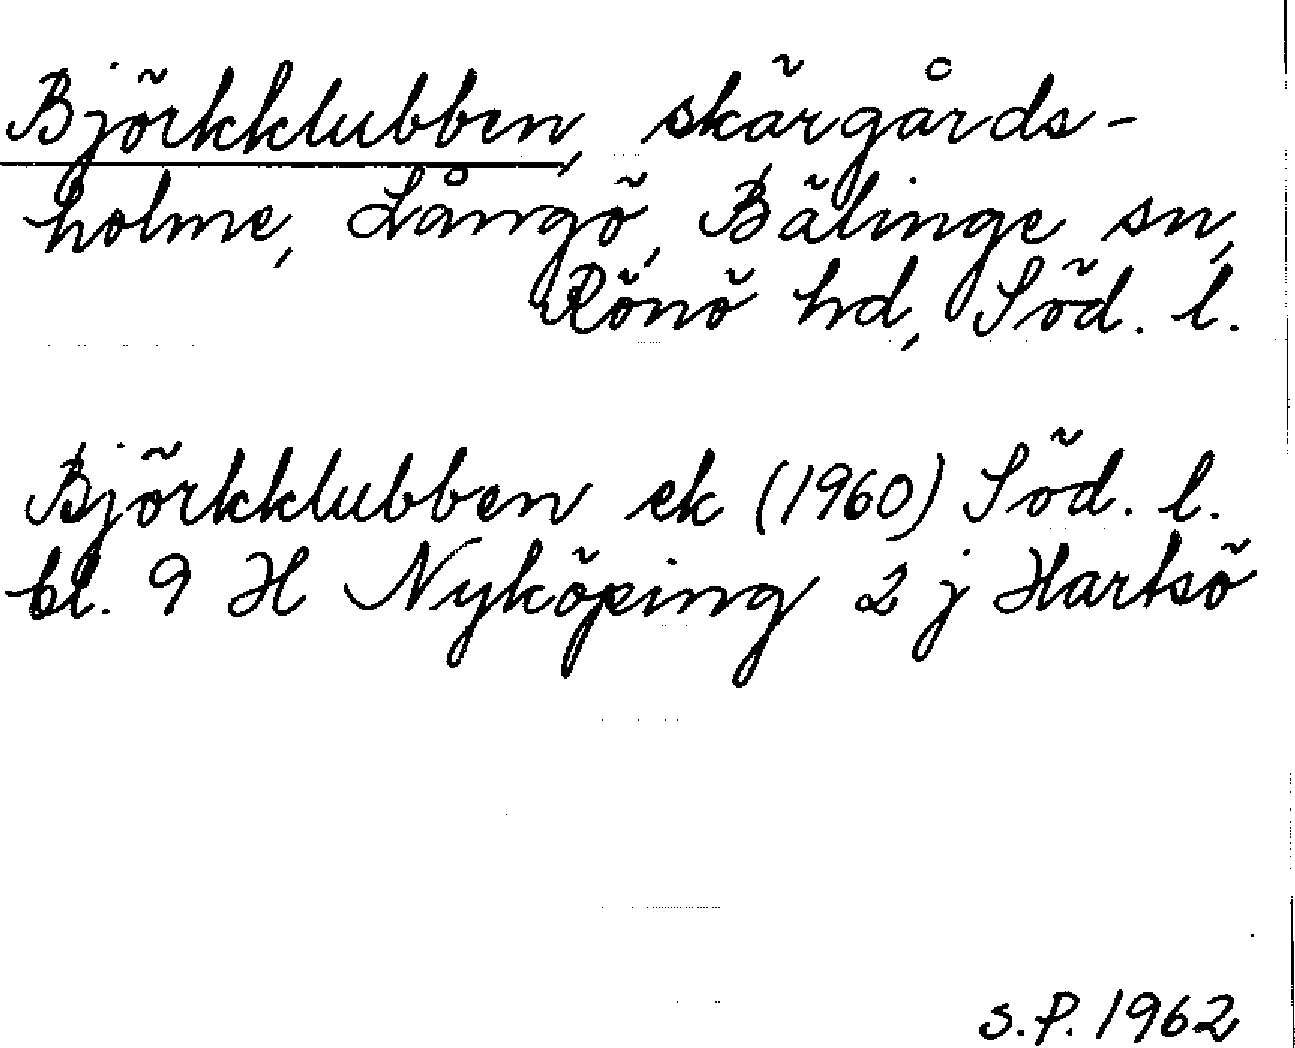 Björkklubben, skärgårds-
holme, Långö, Bälinge sn,
Rönö hd, Söd. l.
Björkklubben ek (1960) Söd. l.
bl. 9 H Nyköping 2 j Hartsö
S.P. 1962